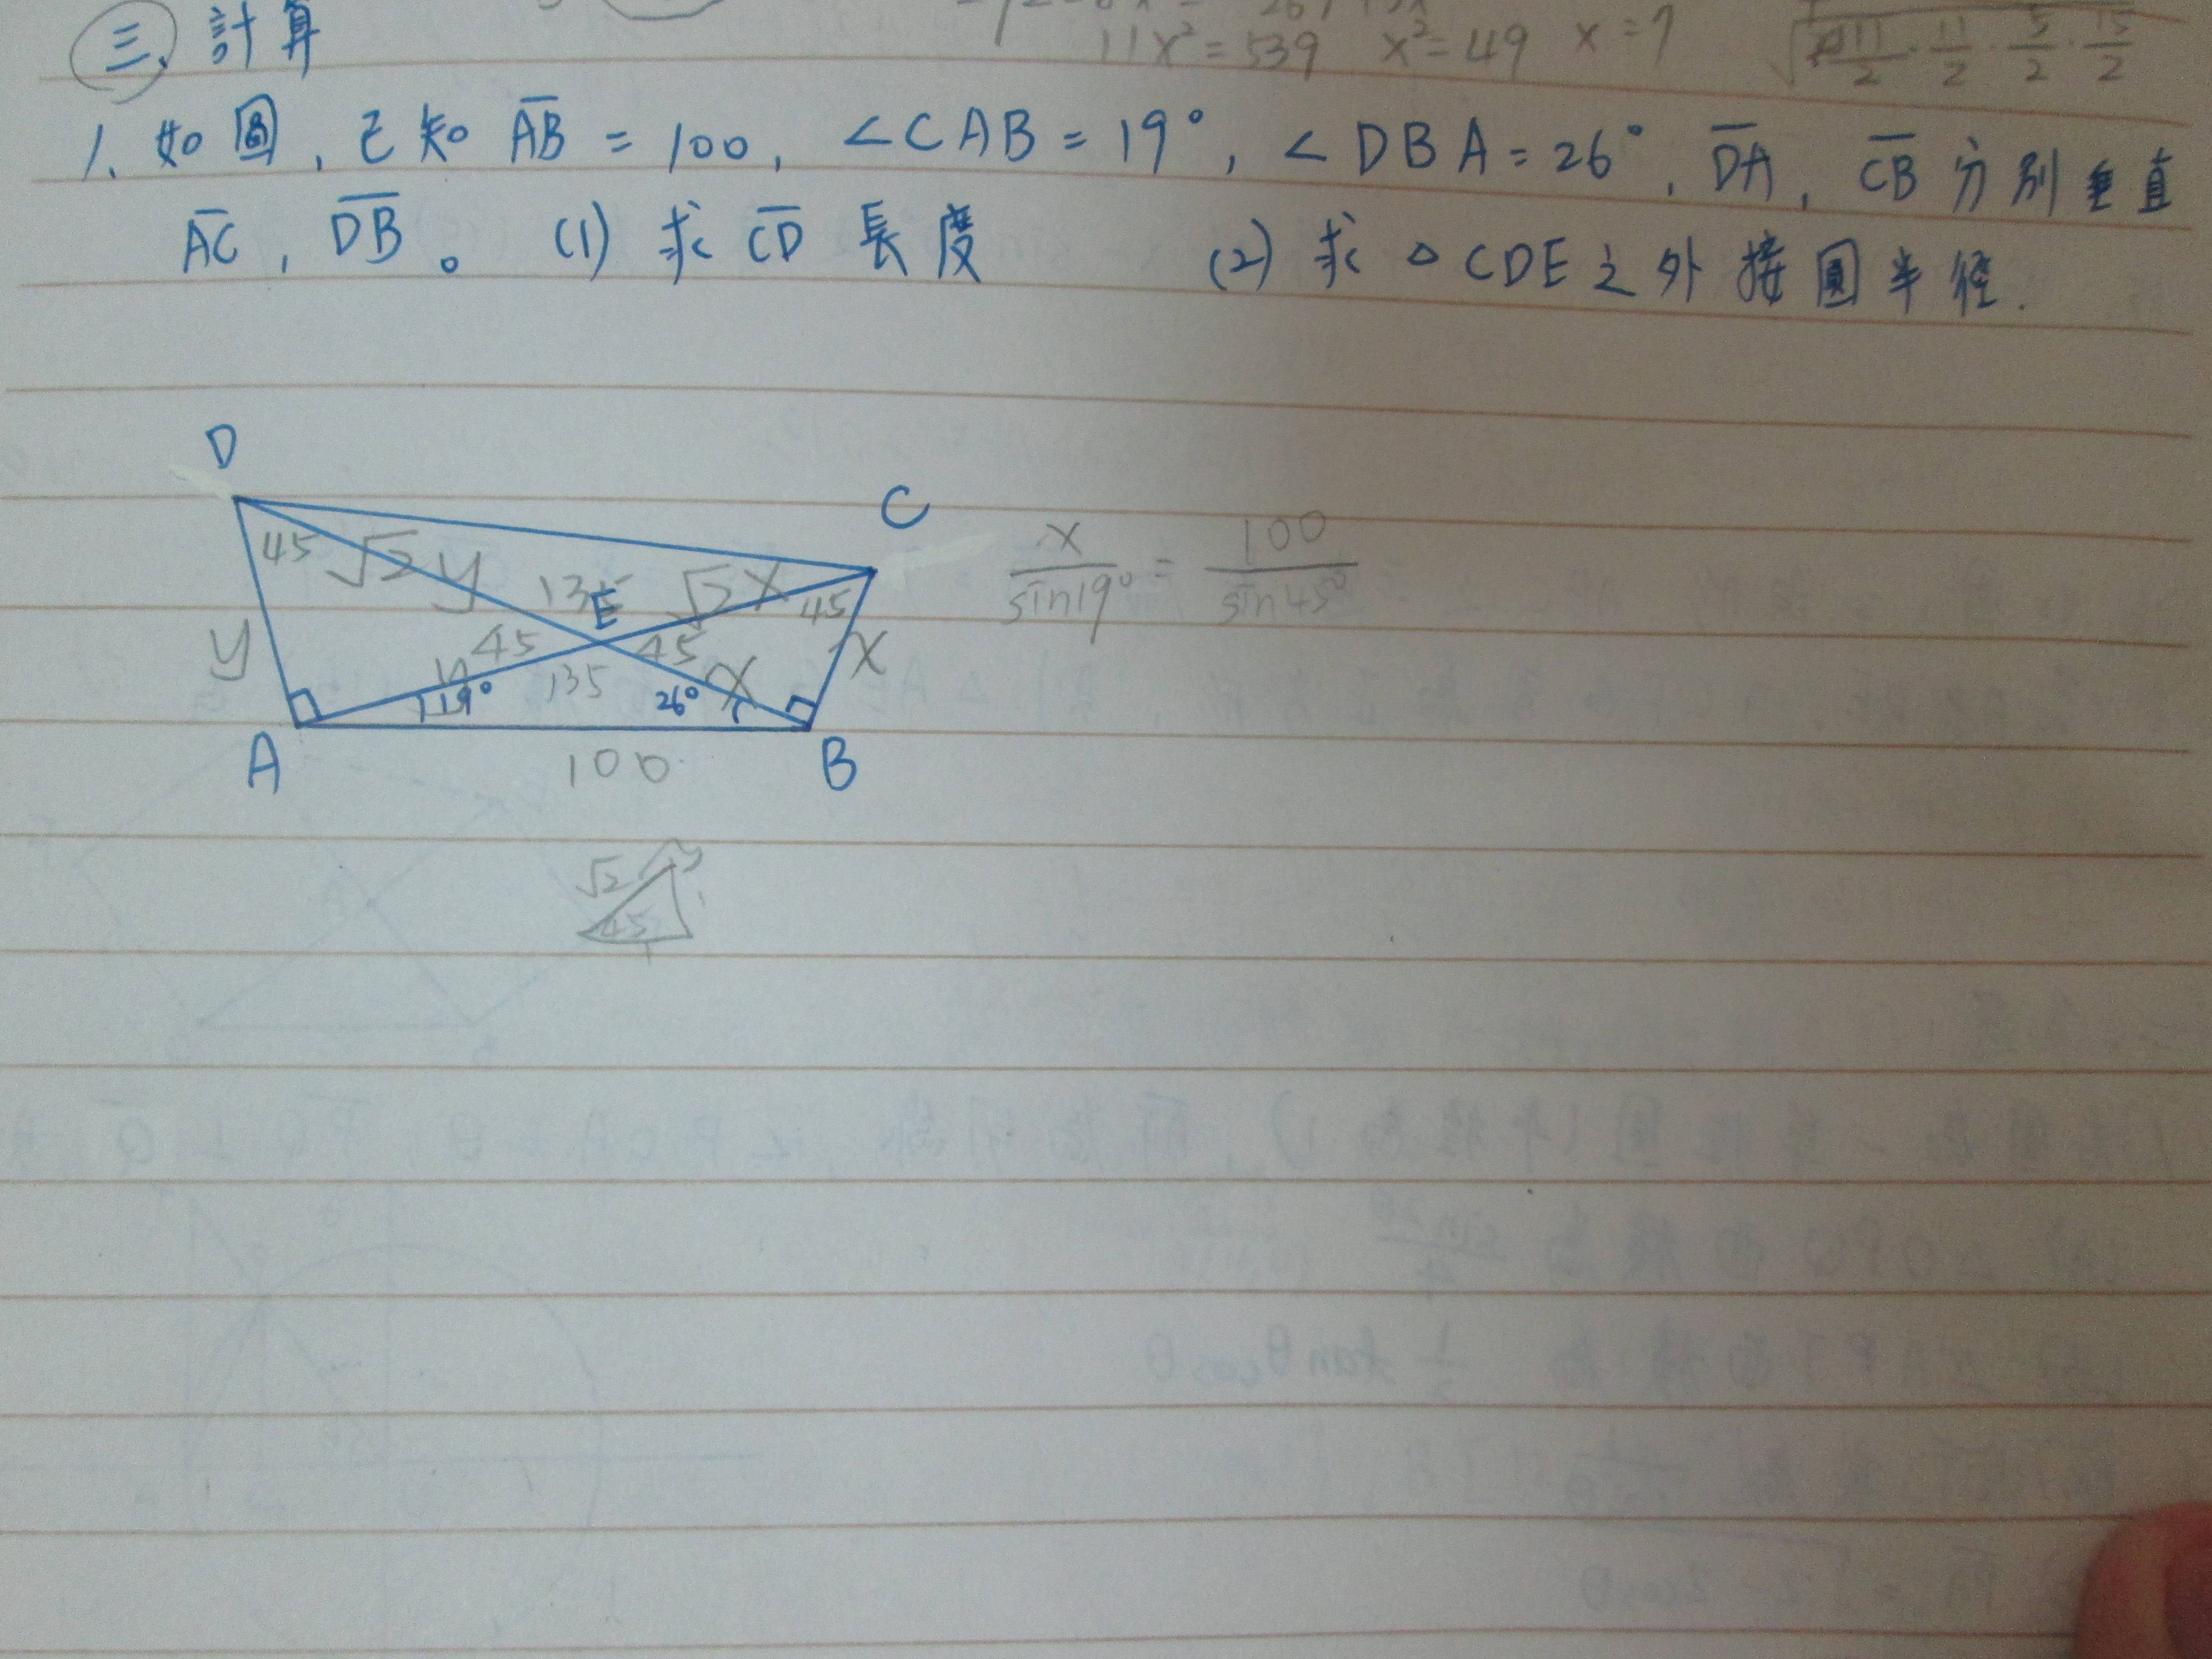 11x² = 539 x² = 49 x = 7
三、計算
1. 如圖, 已知 A̅B̅ = 100, ∠CAB = 19°, ∠DBA = 26°, D̅A̅, C̅B̅ 分別垂直
A̅C̅, D̅B̅。 (1) 求 C̅D̅ 長度 (2) 求 △CDE之外接圓半徑.
D
C
45 √2 y 135 E √2 x 45
y 45 45 x
19° 135 26° x
A 100 B
x/sin19° = 100/sin45°
√2
45 1